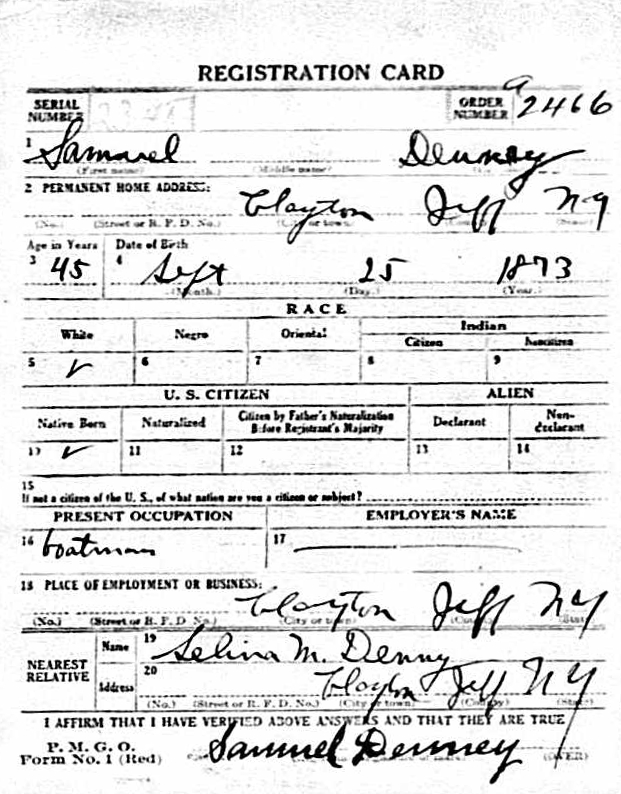 REGISTRATION CARD
SERIAL NUMBER ORDER NUMBER a 2466
1 Samuel Denney
(First name) (Middle name)
2 PERMANENT HOME ADDRESS:
Clayton Jeff N Y
(No.) (Street or R. F. D. No.) (City or town) (County) (State)
Age in Years Date of Birth
3 45 4 Sept 25 1873
(Month.) (Day.) (Year.)
RACE
White Negro Oriental Indian
Citizen Noncitizen
5 ✓ 6 7 8 9
U. S. CITIZEN ALIEN
Native Born Naturalized Citizen by Father's Naturalization Before Registrant's Majority Declarant Non-declarant
10 ✓ 11 12 13 14
15
If not a citizen of the U. S., of what nation are you a citizen or subject?
PRESENT OCCUPATION EMPLOYER'S NAME
16 boatman 17
18 PLACE OF EMPLOYMENT OR BUSINESS:
Clayton Jeff N Y
(No.) (Street or R. F. D. No.) (City or town) (County) (State)
NEAREST RELATIVE Name 19 Selina M. Denny
Address 20 Clayton Jeff N Y
(No.) (Street or R. F. D. No.) (City or town) (County) (State)
I AFFIRM THAT I HAVE VERIFIED ABOVE ANSWERS AND THAT THEY ARE TRUE
P. M. G. O.
Form No. 1 (Red) Samuel Denney (OVER)